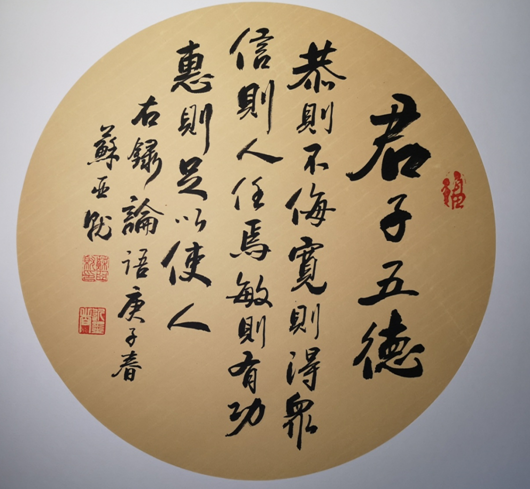 君子五德
恭則不侮寬則得眾
信則人任焉敏則有功
惠則足以使人
右録論語庚子春
蘇亚